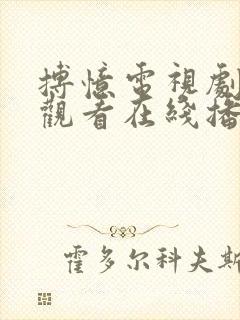 搏憶電視劇
觀看在綫播
霍多尔科夫斯